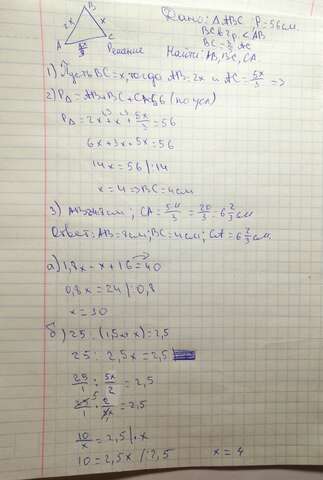 B
2x
x
A
C
5x/3
Дано: △ABC, P=56см.
BC в 2р. < AB
BC = 3/5 AC
Решение
Найти: AB, BC, CA.
1) Пусть BC = x, тогда AB = 2x и AC = 5x/3 =>
2) P△ = AB+BC+CA = 56 (по усл)
P△ = 2x + x + 5x/3 = 56
6x + 3x + 5x = 56
14x = 56 |:14
x = 4 => BC = 4см
3) AB = 8см; CA = 5·4/3 = 20/3 = 6 2/3 см
Ответ: AB = 8см; BC = 4см; CA = 6 2/3 см.
а) 1,8x - x + 16 = 40
0,8x = 24 |:0,8
x = 30
б) 25 : (1,5x + x) = 2,5
25 : 2,5x = 2,5
25/1 : 5x/2 = 2,5
25/1 · 2/5x = 2,5
10/x = 2,5 |·x
10 = 2,5x |:2,5 x = 4